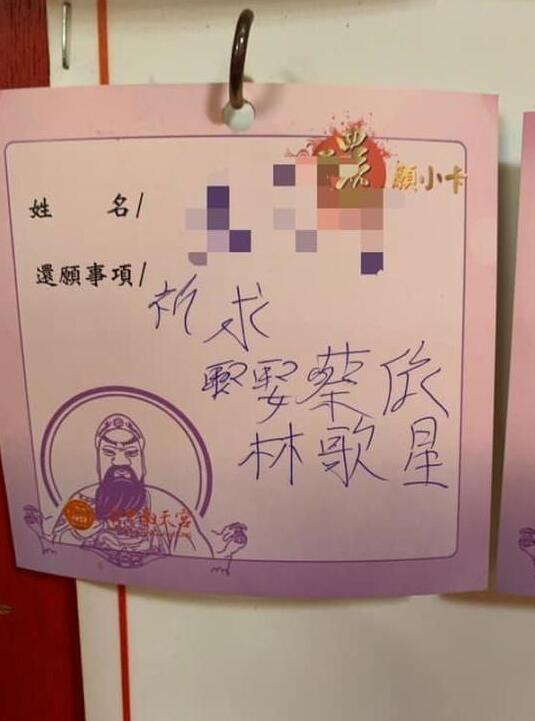 願小卡
姓 名/
還願事項/
祈求
娶蔡依
林歌星
南天宮